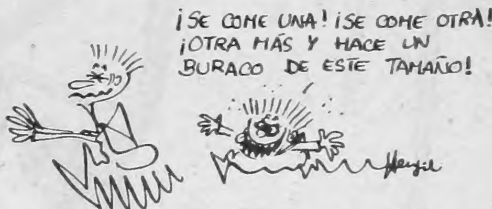 ¡SE COME UNA! ¡SE COME OTRA!
¡OTRA MÁS Y HACE UN
BURACO DE ESTE TAMAÑO!
Henfil